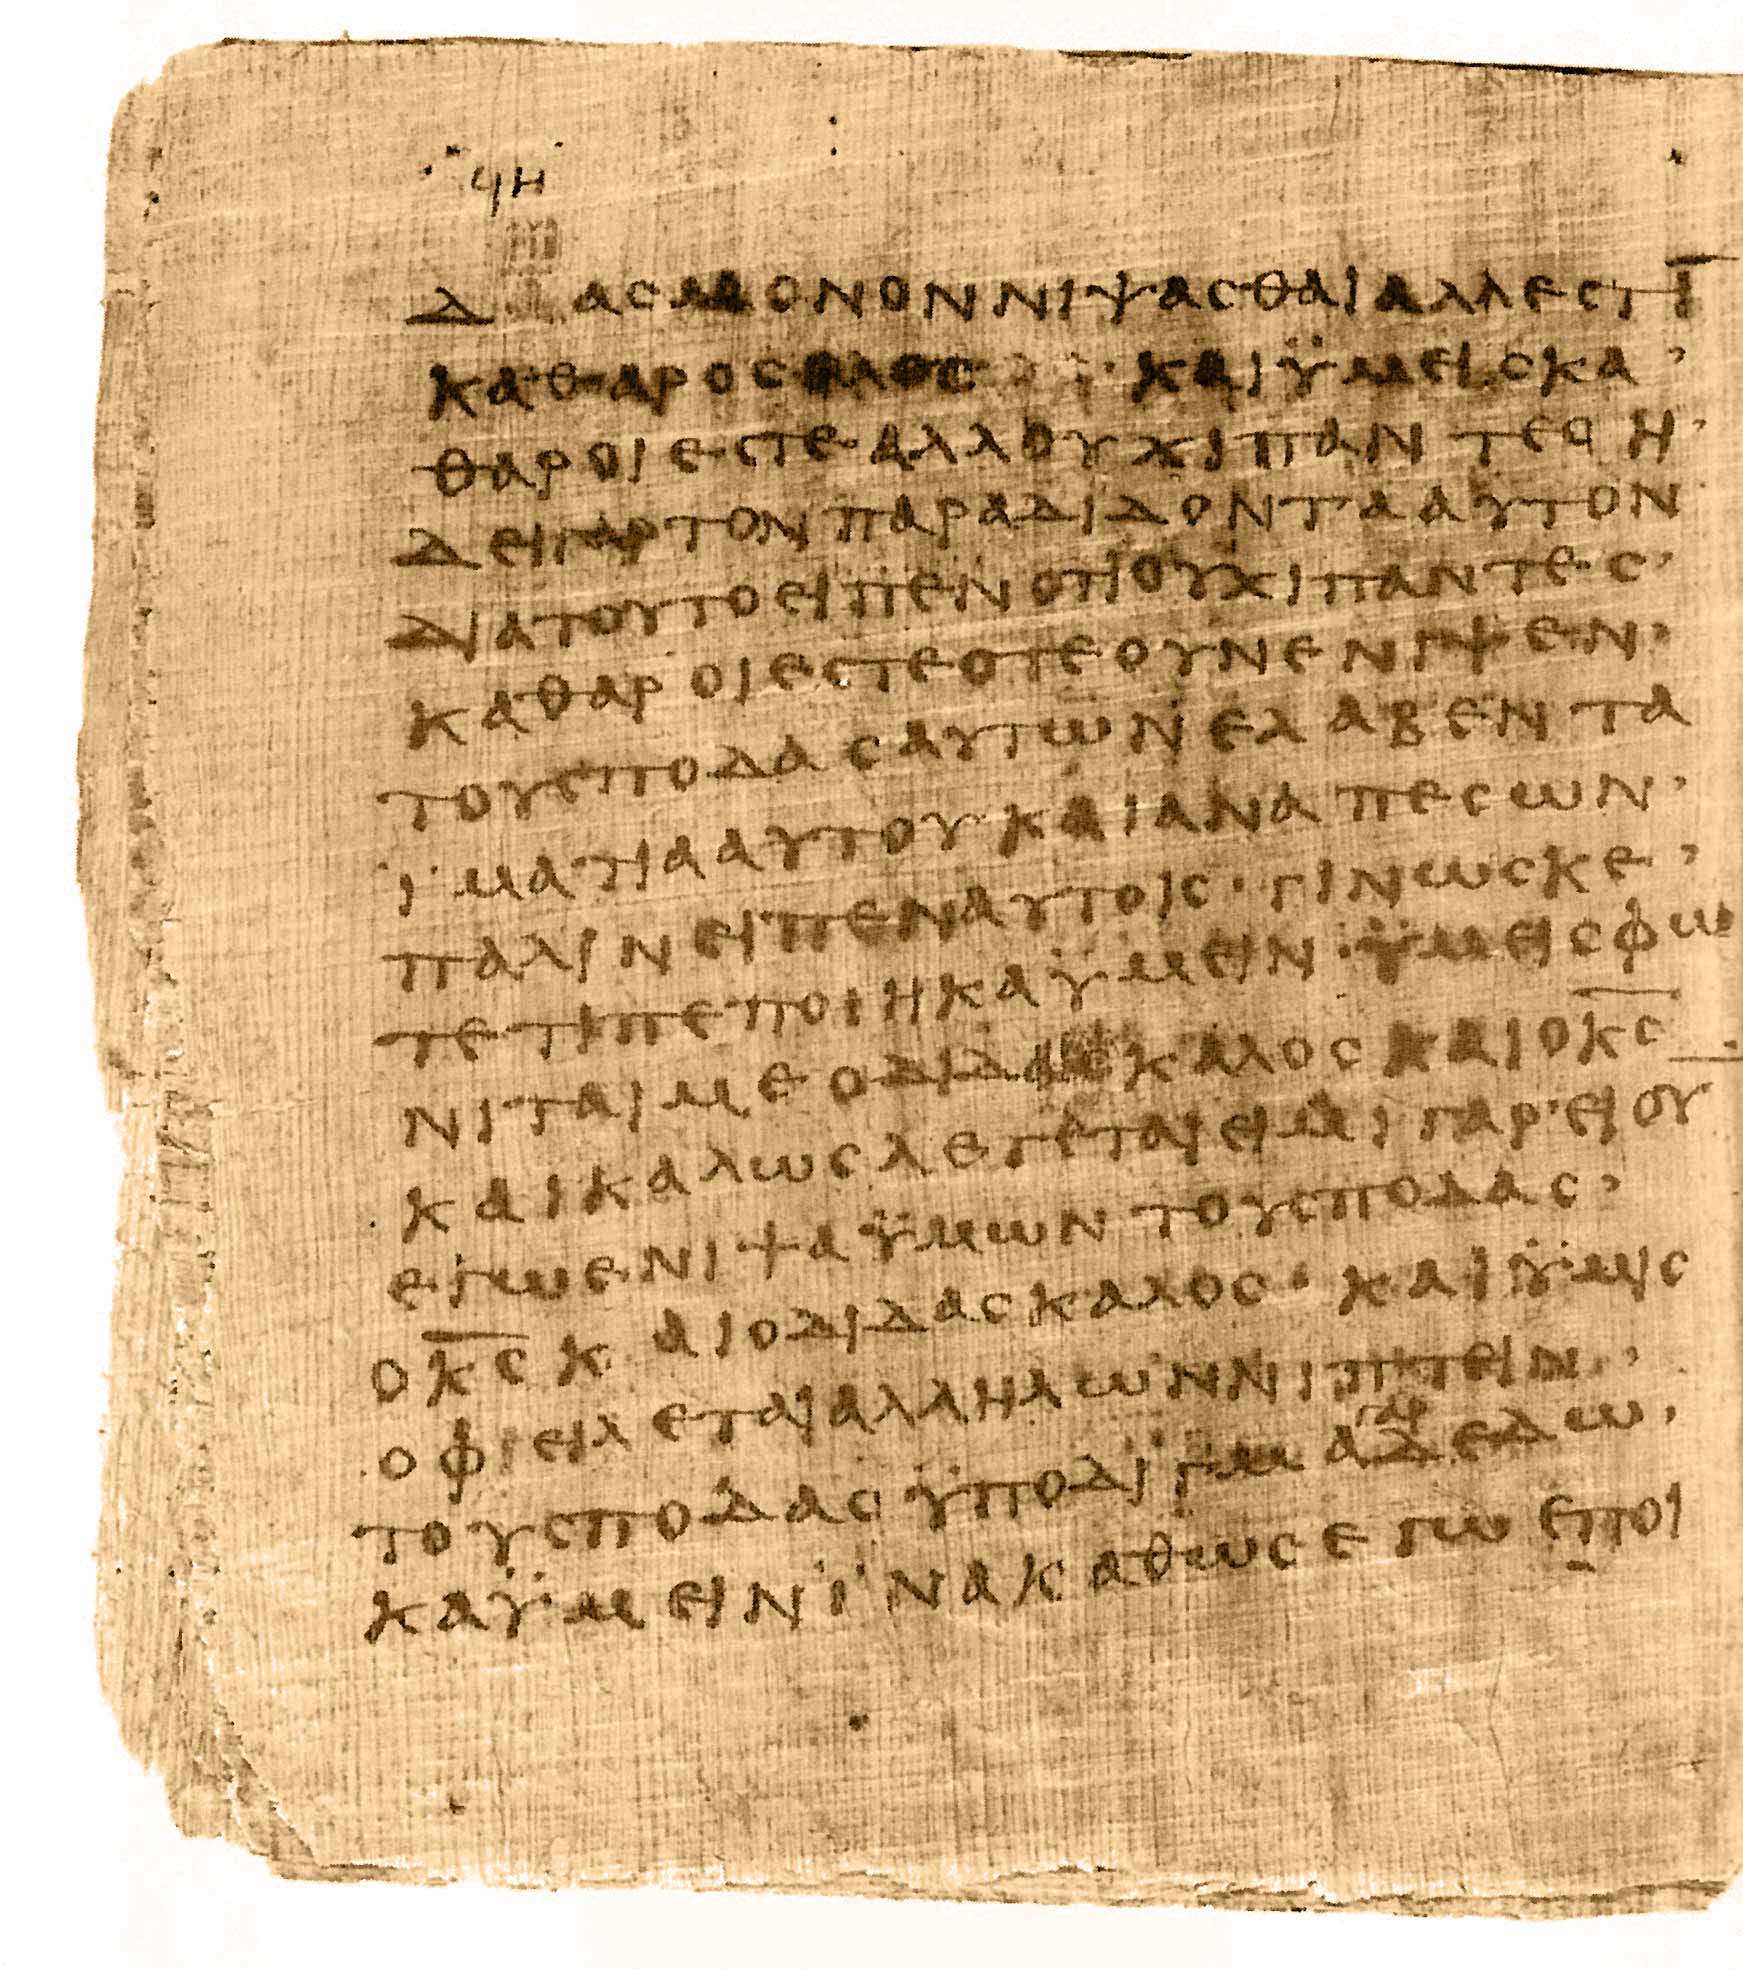 ϥⲏ
ΔΑϹΜΟΝΟΝΝΙΨΑϹΘΑΙΑΛΛΕϹΤΙ̅
ΚΑΘΑΡΟϹΟΛΟϹ · ΚΑΙΫΜΕΙϹΚΑ᾽
ΘΑΡΟΙΕϹΤΕΑΛΛΟΥΧΙΠΑΝΤΕϹΗ᾽
ΔΕΙΓΑΡΤΟΝΠΑΡΑΔΙΔΟΝΤΑΑΥΤΟΝ
ΔΙΑΤΟΥΤΟΕΙΠΕΝΟΤΙΟΥΧΙΠΑΝΤΕϹ᾽
ΚΑΘΑΡΟΙΕϹΤΕΟΤΕΟΥΝΕΝΙΨΕΝ᾽
ΤΟΥϹΠΟΔΑϹΑΥΤΩΝΕΛΑΒΕΝΤΑ
ΪΜΑΤΙΑΑΥΤΟΥΚΑΙΑΝΑΠΕϹΩΝ᾽
ΠΑΛΙΝΕΙΠΕΝΑΥΤΟΙϹ·ΓΙΝΩϹΚΕ᾽
ΤΕΤΙΠΕΠΟΙΗΚΑΫΜΕΙΝ·ΫΜΕΙϹΦΩ
ΝΙΤΑΙΜΕΟΔΙΔΑϹΚΑΛΟϹΚΑΙΟΚ̅Ϲ̅
ΚΑΙΚΑΛΩϹΛΕΓΕΤΑΙΕΙΜΙΓΑΡ᾽ΕΙΟΥ̅
ΕΓΩΕΝΙΨΑΫΜΩΝΤΟΥϹΠΟΔΑϹ᾽
ΟΚ̅Ϲ̅ΚΑΙΟΔΙΔΑϹΚΑΛΟϹ·ΚΑΙΫΜΙϹ
ΟΦΕΙΛΕΤΑΙΑΛΛΗΛΩΝΝΙΠΤΕΙΝ᾽
ΤΟΥϹΠΟΔΑϹΫΠΟΔΙΓΜΑ`ΓΑΡ´ΔΕΔΩ᾽
ΚΑΫΜΕΙΝΪΝΑΚΑΘΩϹΕΓΩΕΠΟΙ